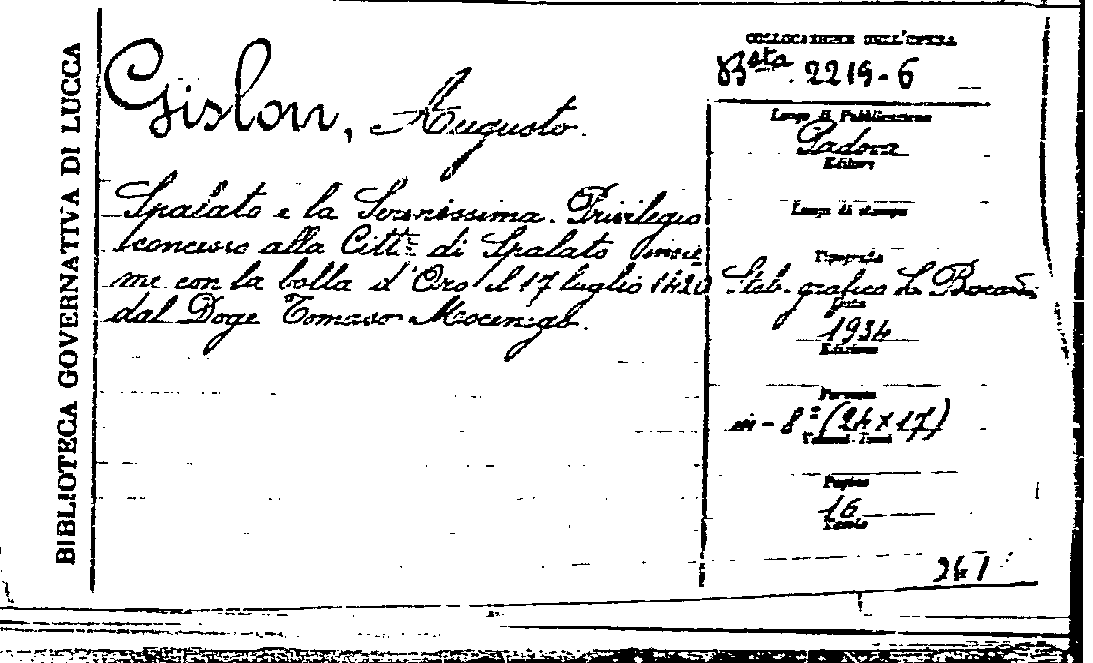 BIBLIOTECA GOVERNATIVA DI LUCCA
Gislon, Augusto.
Spalato e la Serenissima. Privilegio
concesso alla Città di Spalato insie
me con la bolla d'Oro il 17 luglio 1420
dal Doge Tomaso Mocenigo.
COLLOCAZIONE DELL'OPERA
Bsta. 2219-6
Luogo di Pubblicazione
Padova
Editore
Luogo di stampa
Tipografia
Stab. grafico L.
Data
1934
Edizione
Formato
in-8º (24x17)
Pagine
16
Tavole
267